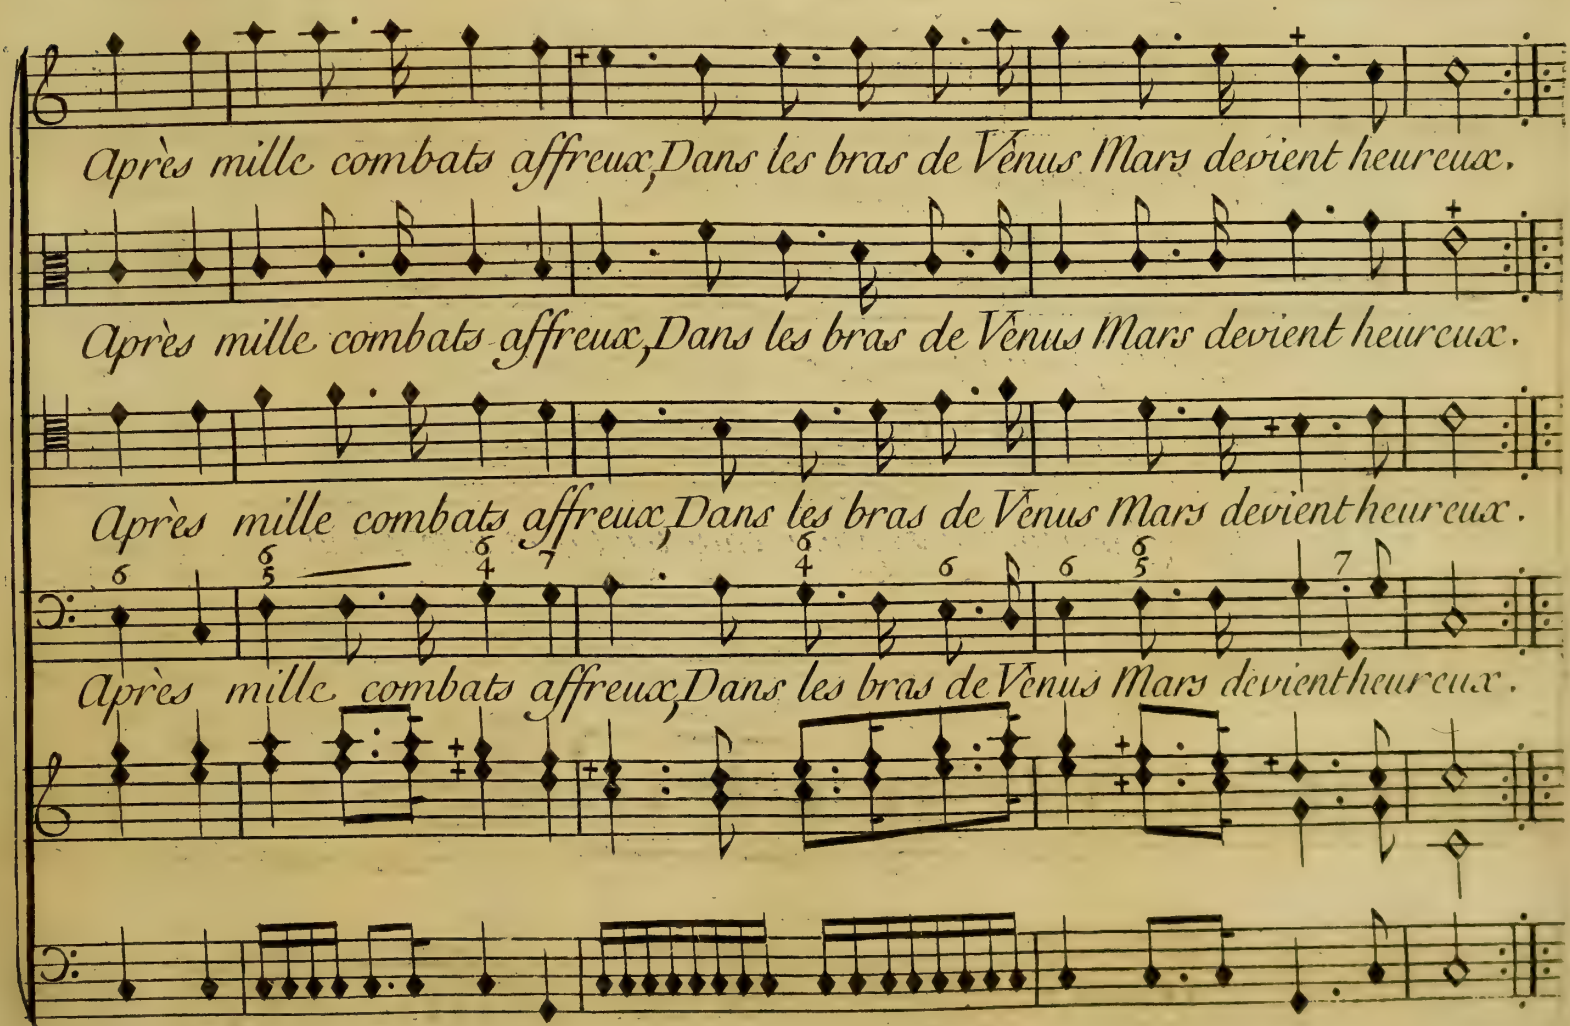 Après mille combats affreux, Dans les bras de Vénus Mars devient heureux.
Après mille combats affreux, Dans les bras de Vénus Mars devient heureux.
Après mille combats affreux, Dans les bras de Vénus Mars devient heureux.
6 6 5 6 4 7 6 4 6 6 6 5 7
Après mille combats affreux, Dans les bras de Vénus Mars devient heureux.